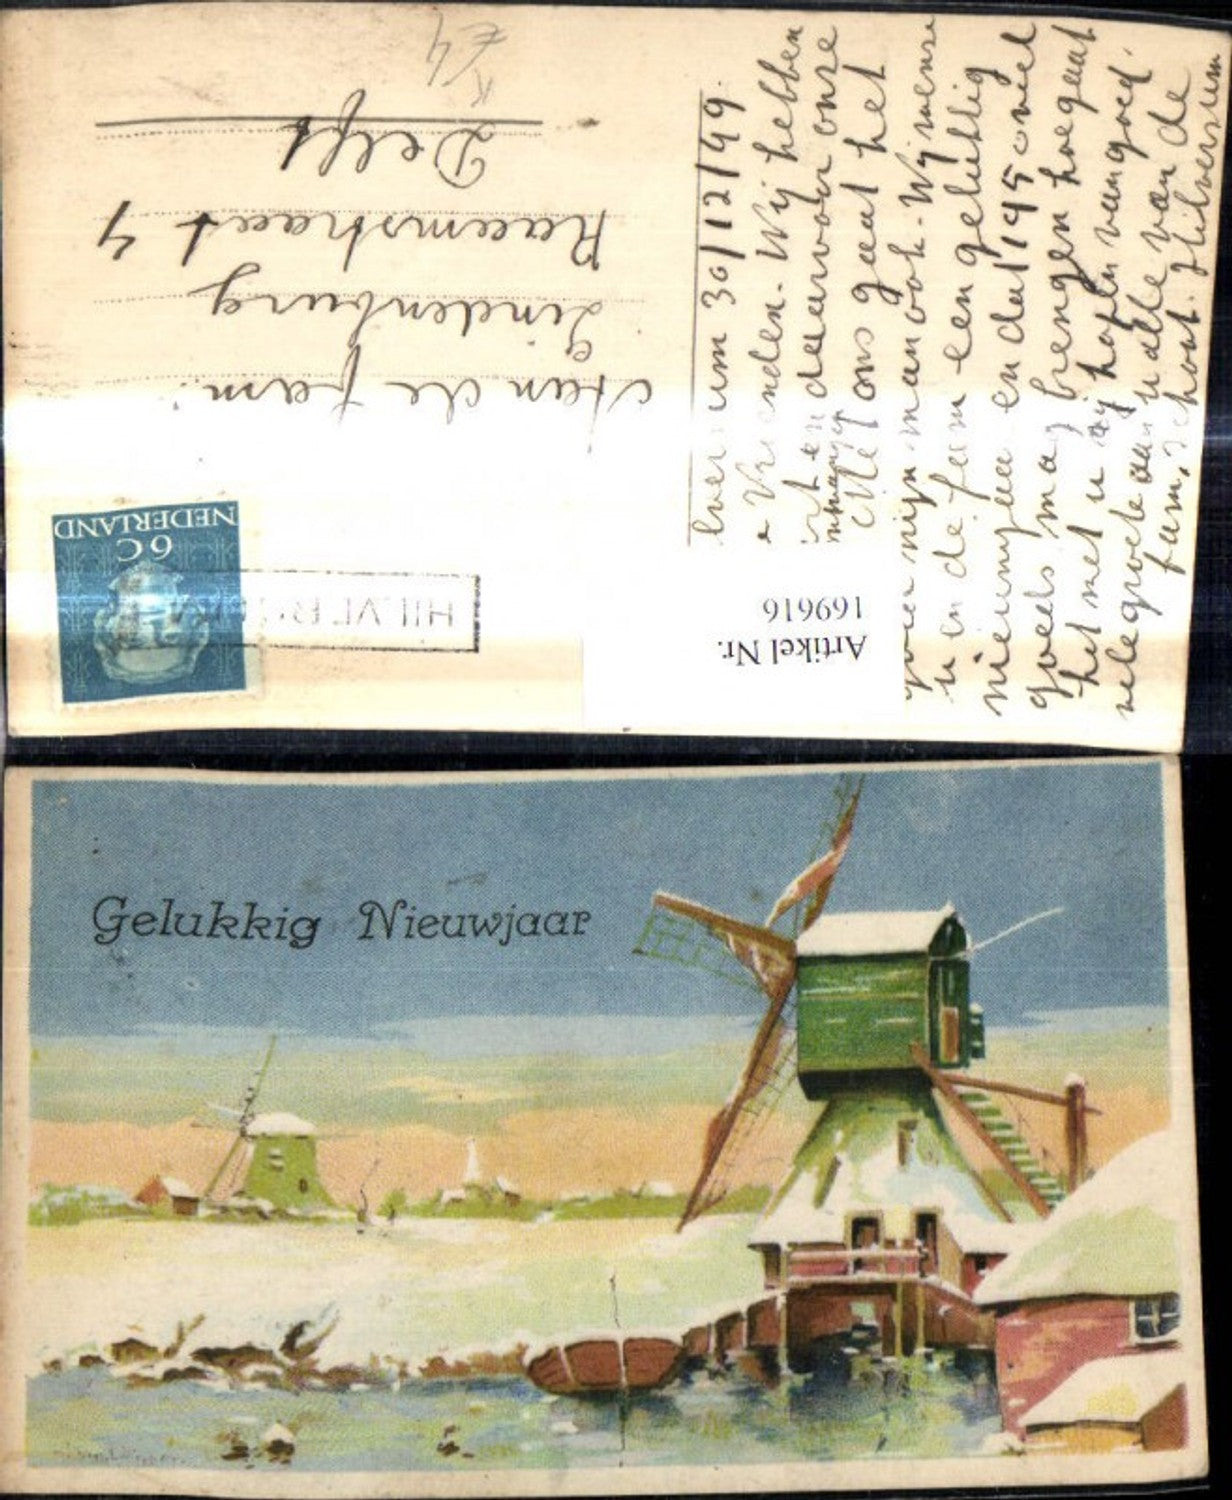 €4
Aan de fam.
Lindenburg
Raamstraat 4
Delft
NEDERLAND
6 C
HILVERSUM
Artikel Nr.
169616
um 30/12/49.
Vrienden. Wij hebben
en daarvoor onze
ons gaat het
mijn man ook. Wij wense
u en de fam een gelukkig
nieuwjaar en dat 1950 veel
goeds mag brengen hoe gaat
het met u wij hopen van goed.
vele groete aan u alle van de
fam, Schout. Hilversum
Gelukkig Nieuwjaar